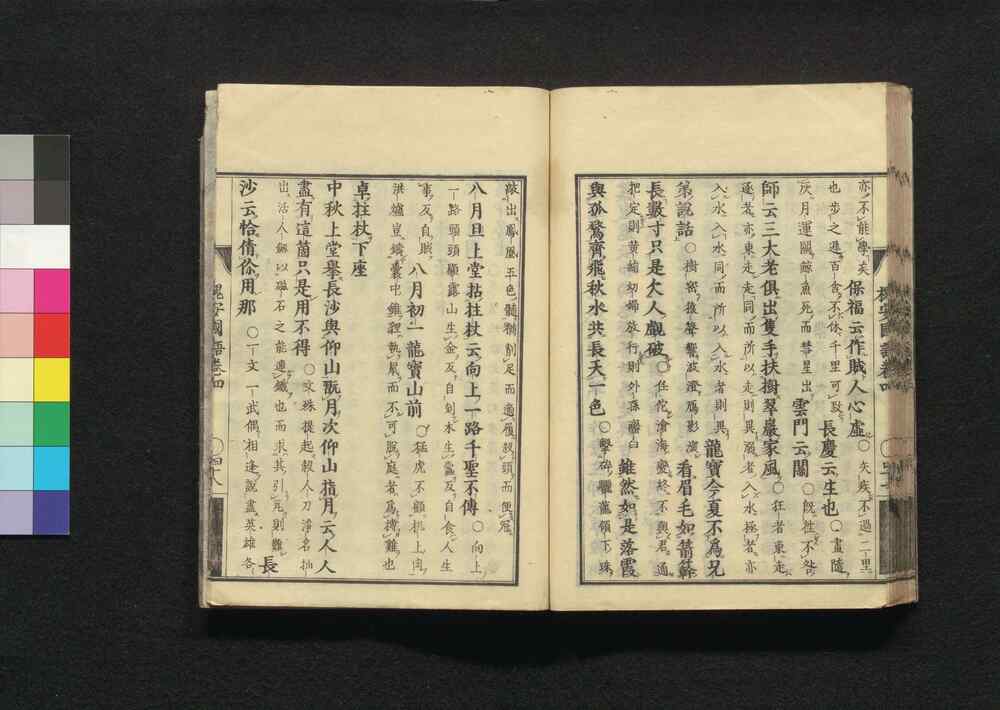 亦不能學矣 保福云作賊人心虛 ○矢疾不過二里
也步之遲百舍不休千里可致 長慶云生也 ○畫隨
灰月運闕鯨魚死而彗星出 雲門云關 ○旣往不咎
師云三大老俱出隻手扶樹翠巖家風 ○狂者東走
逐者亦東走走同而所以走則異溺者入水拯者亦
入水入水同而所以入水者則異 龍寶今夏不爲兄
弟說話 ○樹密猿聲響波澄雁影深 看眉毛如箭簳
長數寸只是欠人覷破 ○任佗滄海變終不與君通
把定則黃絹幼婦放行則外孫韲臼 雖然如是落霞
與孤鶩齊飛秋水共長天一色 ○擊碎驪龍頷下珠
敲出鳳凰五色髓猶削足而適履殺頭而便冠
八月旦上堂拈拄杖云向上一路千聖不傳 ○向上
一路頭頭顯露山生金反自刻木生蠹反自食人生
事反自賊 八月初一龍寶山前 ○猛虎不顧机上肉
洪爐豈鑄囊中錐裡執鼠而不可脫庭者爲搏雞也
卓拄杖下座
中秋上堂擧長沙與仰山翫月次仰山指月云人人
盡有這箇只是用不得 ○文殊提起殺人刀淨名抽
出活人劍以磁石之能連鐵也而求其引瓦則難 長
沙云恰倩你用那 ○一文一武偶相逢說盡英雄各
槐安國語卷四 ○四十八